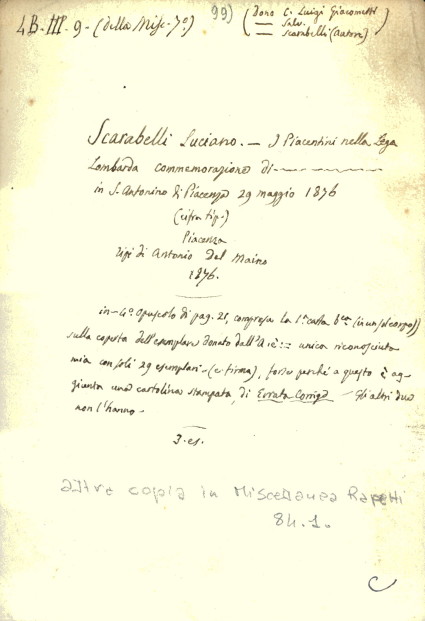 4B-III-9-(della Misc. 7ª)
99)
(Dono C. Luigi Giacometti
— Salv.
— Scarabelli (autore))
Scarabelli Luciano. — I Piacentini nella Lega
Lombarda commemorazione di
in S. Antonino di Piacenza 29 maggio 1876
(cifra tip.)
Piacenza
tipi di Antonio Del Maino
1876.
in-4º opuscolo di pag. 21, compresa la 1ª carta bca (in un sol corpo))
sulla coperta dell'esemplare donato dall'A. è := unica riconosciuta
mia con soli 29 esemplari - (e firma), forse perché a questo è ag-
giunta una cartolina stampata, di Errata Corrige - Gli altri due
non l'hanno -
3. es.
altra copia in Miscellanea Rapetti
84.1.
C